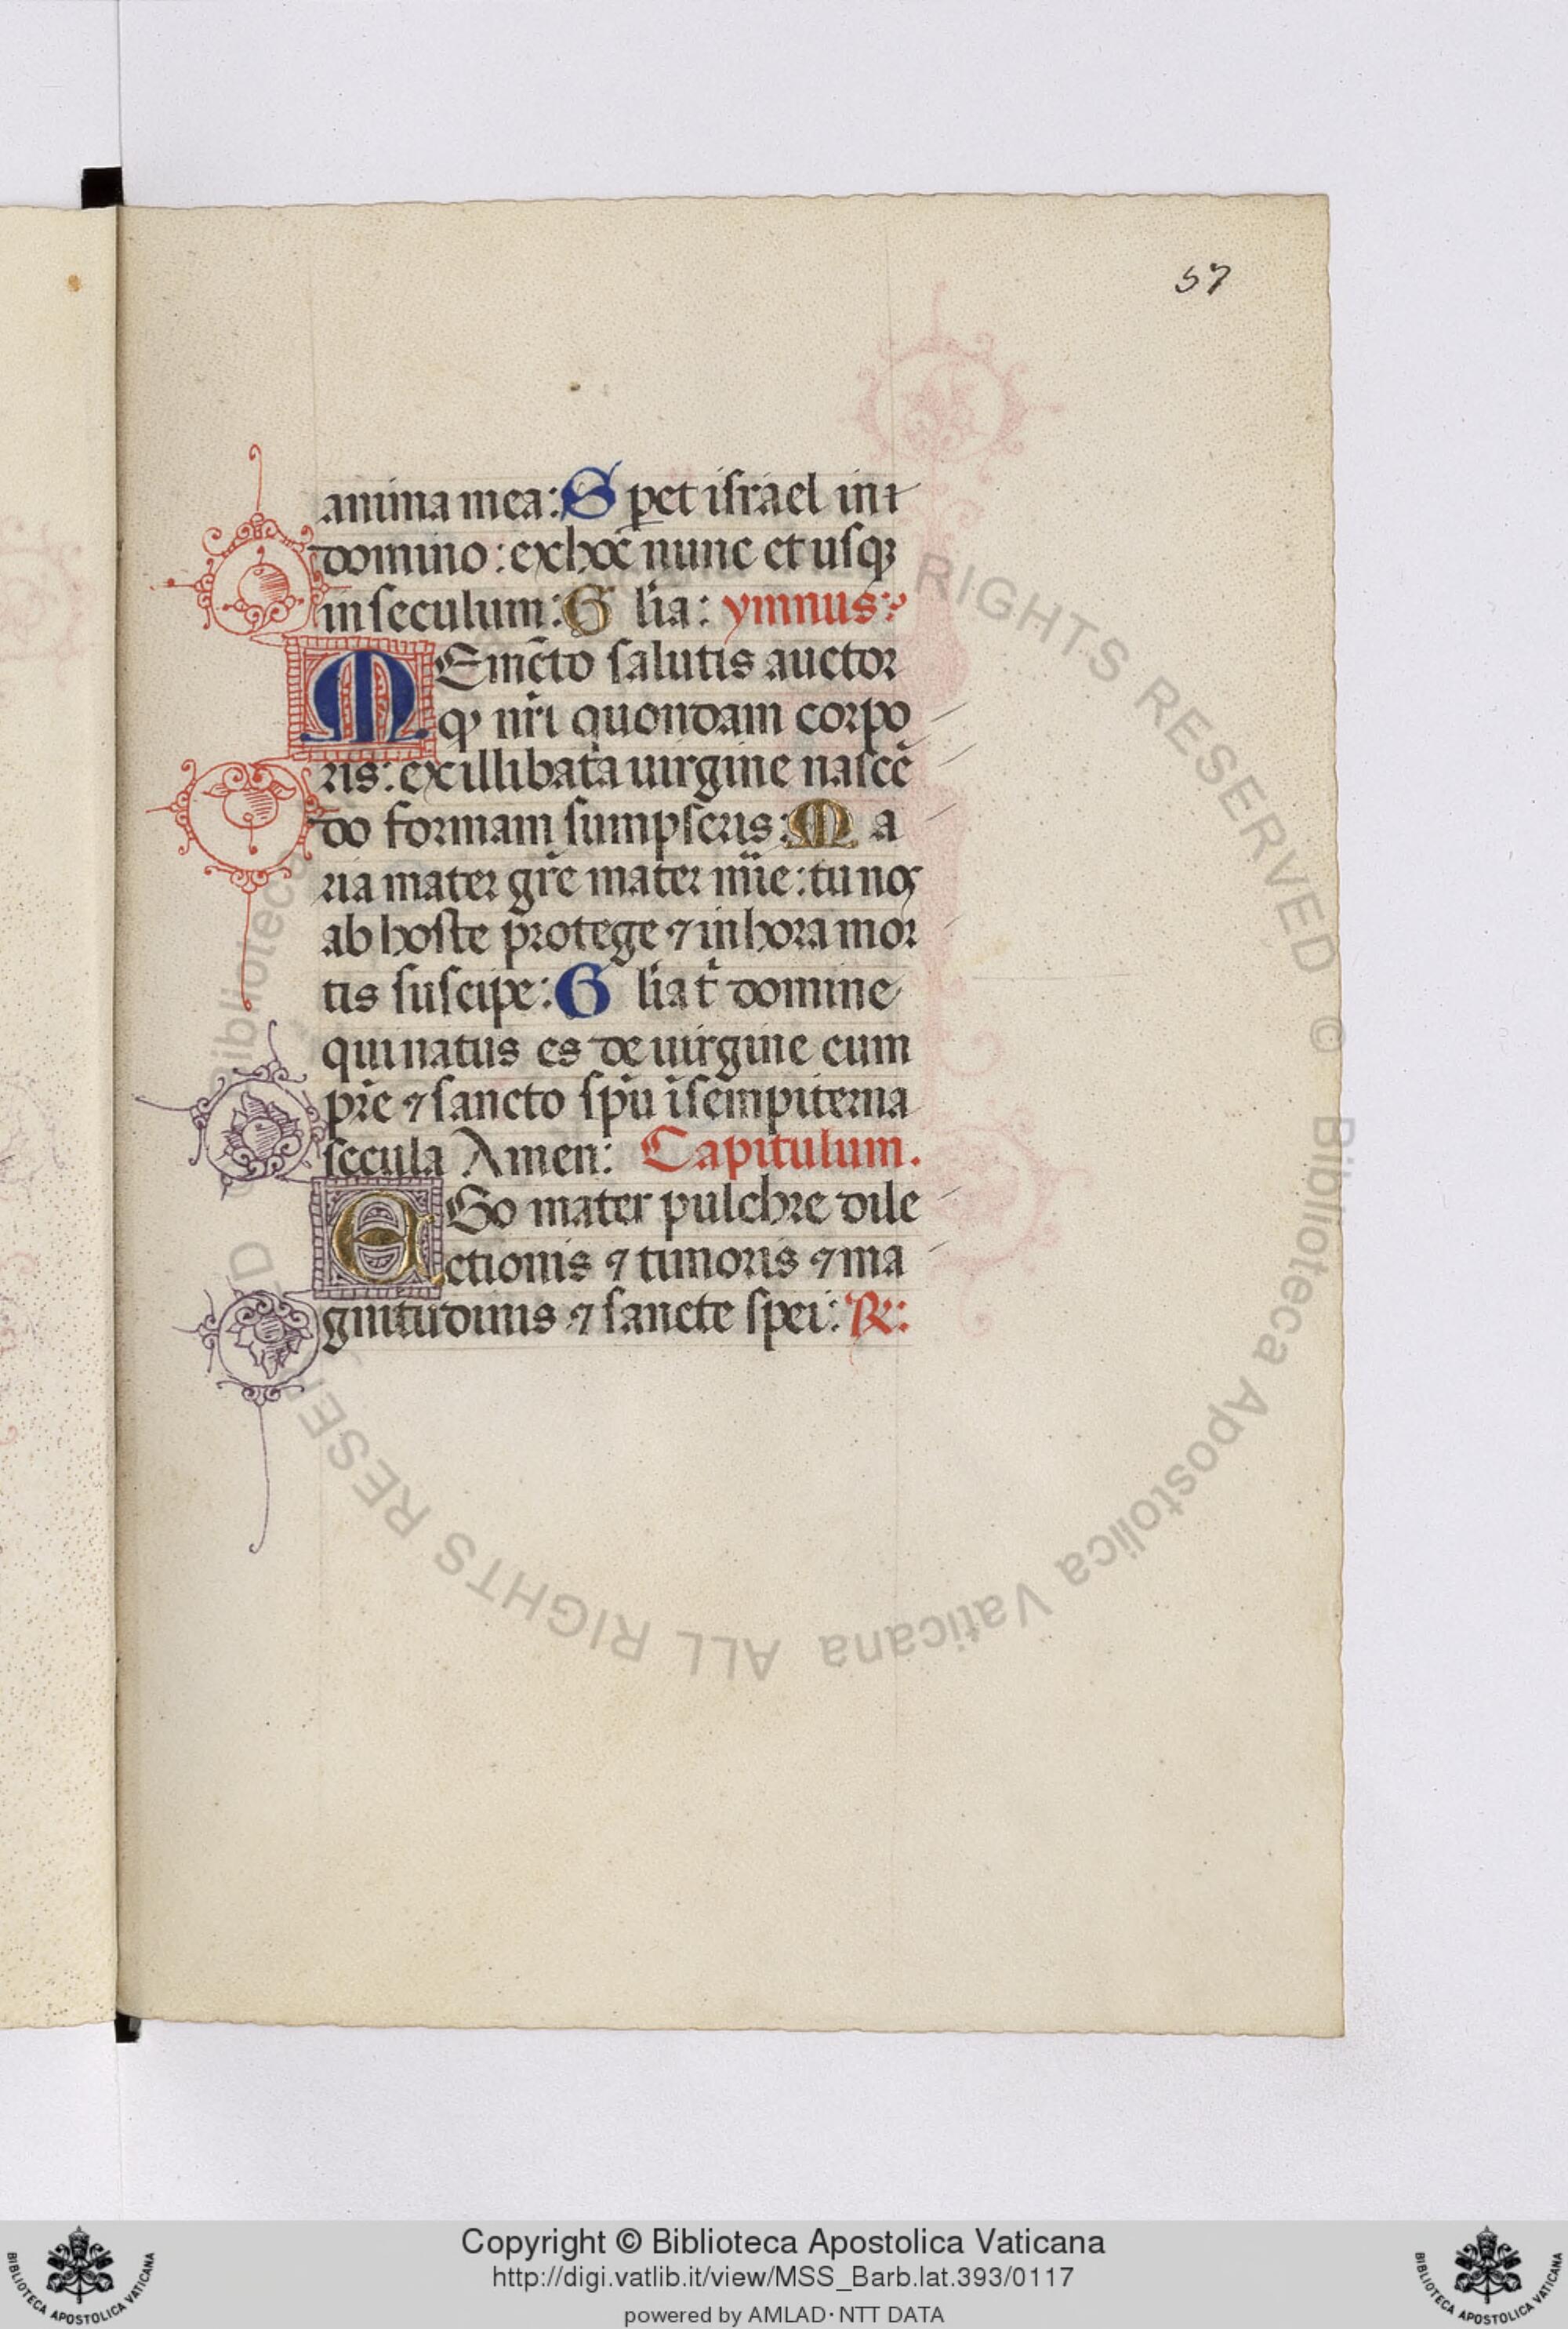 57
anima mea: S p̲et israel in
domino: ex hoc nunc et usq;
in seculum: G l'ia: ymnus:
MEme̅to salutis auctor
q nr̅i quondam corpo
ris: ex illibata uirgine nasce̅
do formam sumpseris: M a
ria mater gr̅e mater mi̅e: tu nos
ab hoste protege ⁊ in hora mor
tis suscipe: G l'ia t domine
qui natus es de uirgine cum
pr̅e ⁊ sancto sp̅u i̅ sempiterna
secula Amen: Capitulum.
EGo mater pulchre dile
ctionis ⁊ timoris ⁊ ma
gnitudinis ⁊ sancte spei: R:
© Biblioteca Apostolica Vaticana ALL RIGHTS RESERVED
Copyright © Biblioteca Apostolica Vaticana
http://digi.vatlib.it/view/MSS_Barb.lat.393/0117
powered by AMLAD·NTT DATA
BIBLIOTECA APOSTOLICA VATICANA
BIBLIOTECA APOSTOLICA VATICANA